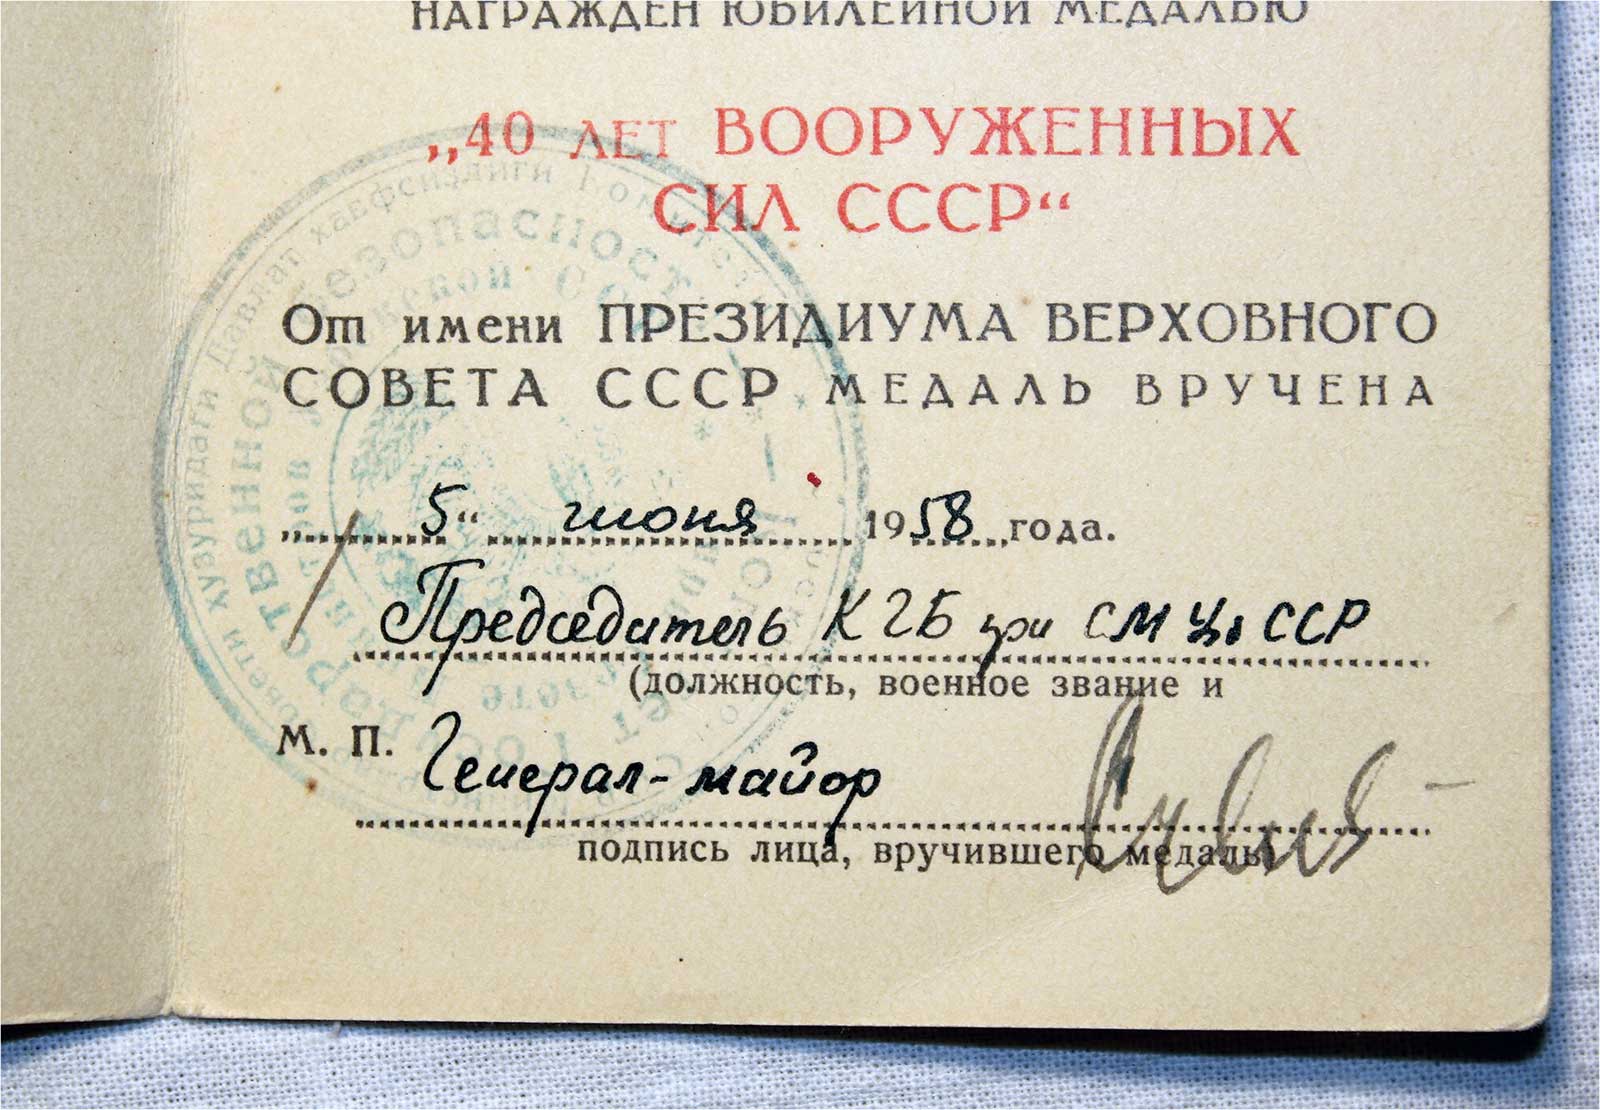 НАГРАЖДЕН ЮБИЛЕЙНОЙ МЕДАЛЬЮ
„40 ЛЕТ ВООРУЖЕННЫХ
СИЛ СССР“
От имени ПРЕЗИДИУМА ВЕРХОВНОГО
СОВЕТА СССР МЕДАЛЬ ВРУЧЕНА
„5“ июня 1958 года.
Председатель КГБ при СМ Уз ССР
(должность, военное звание и
М. П. Генерал-майор
подпись лица, вручившего медаль)
хузуридаги Давлат хавфсизлиги
безопасности